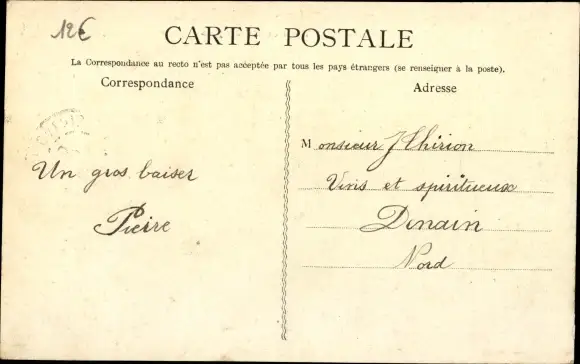 12€
CARTE POSTALE
La Correspondance au recto n'est pas acceptée par tous les pays étrangers (se renseigner à la poste).
Correspondance
Adresse
Un gros baiser
Pierre
Monsieur J Thirion
Vins et spiritueux
Denain
Nord